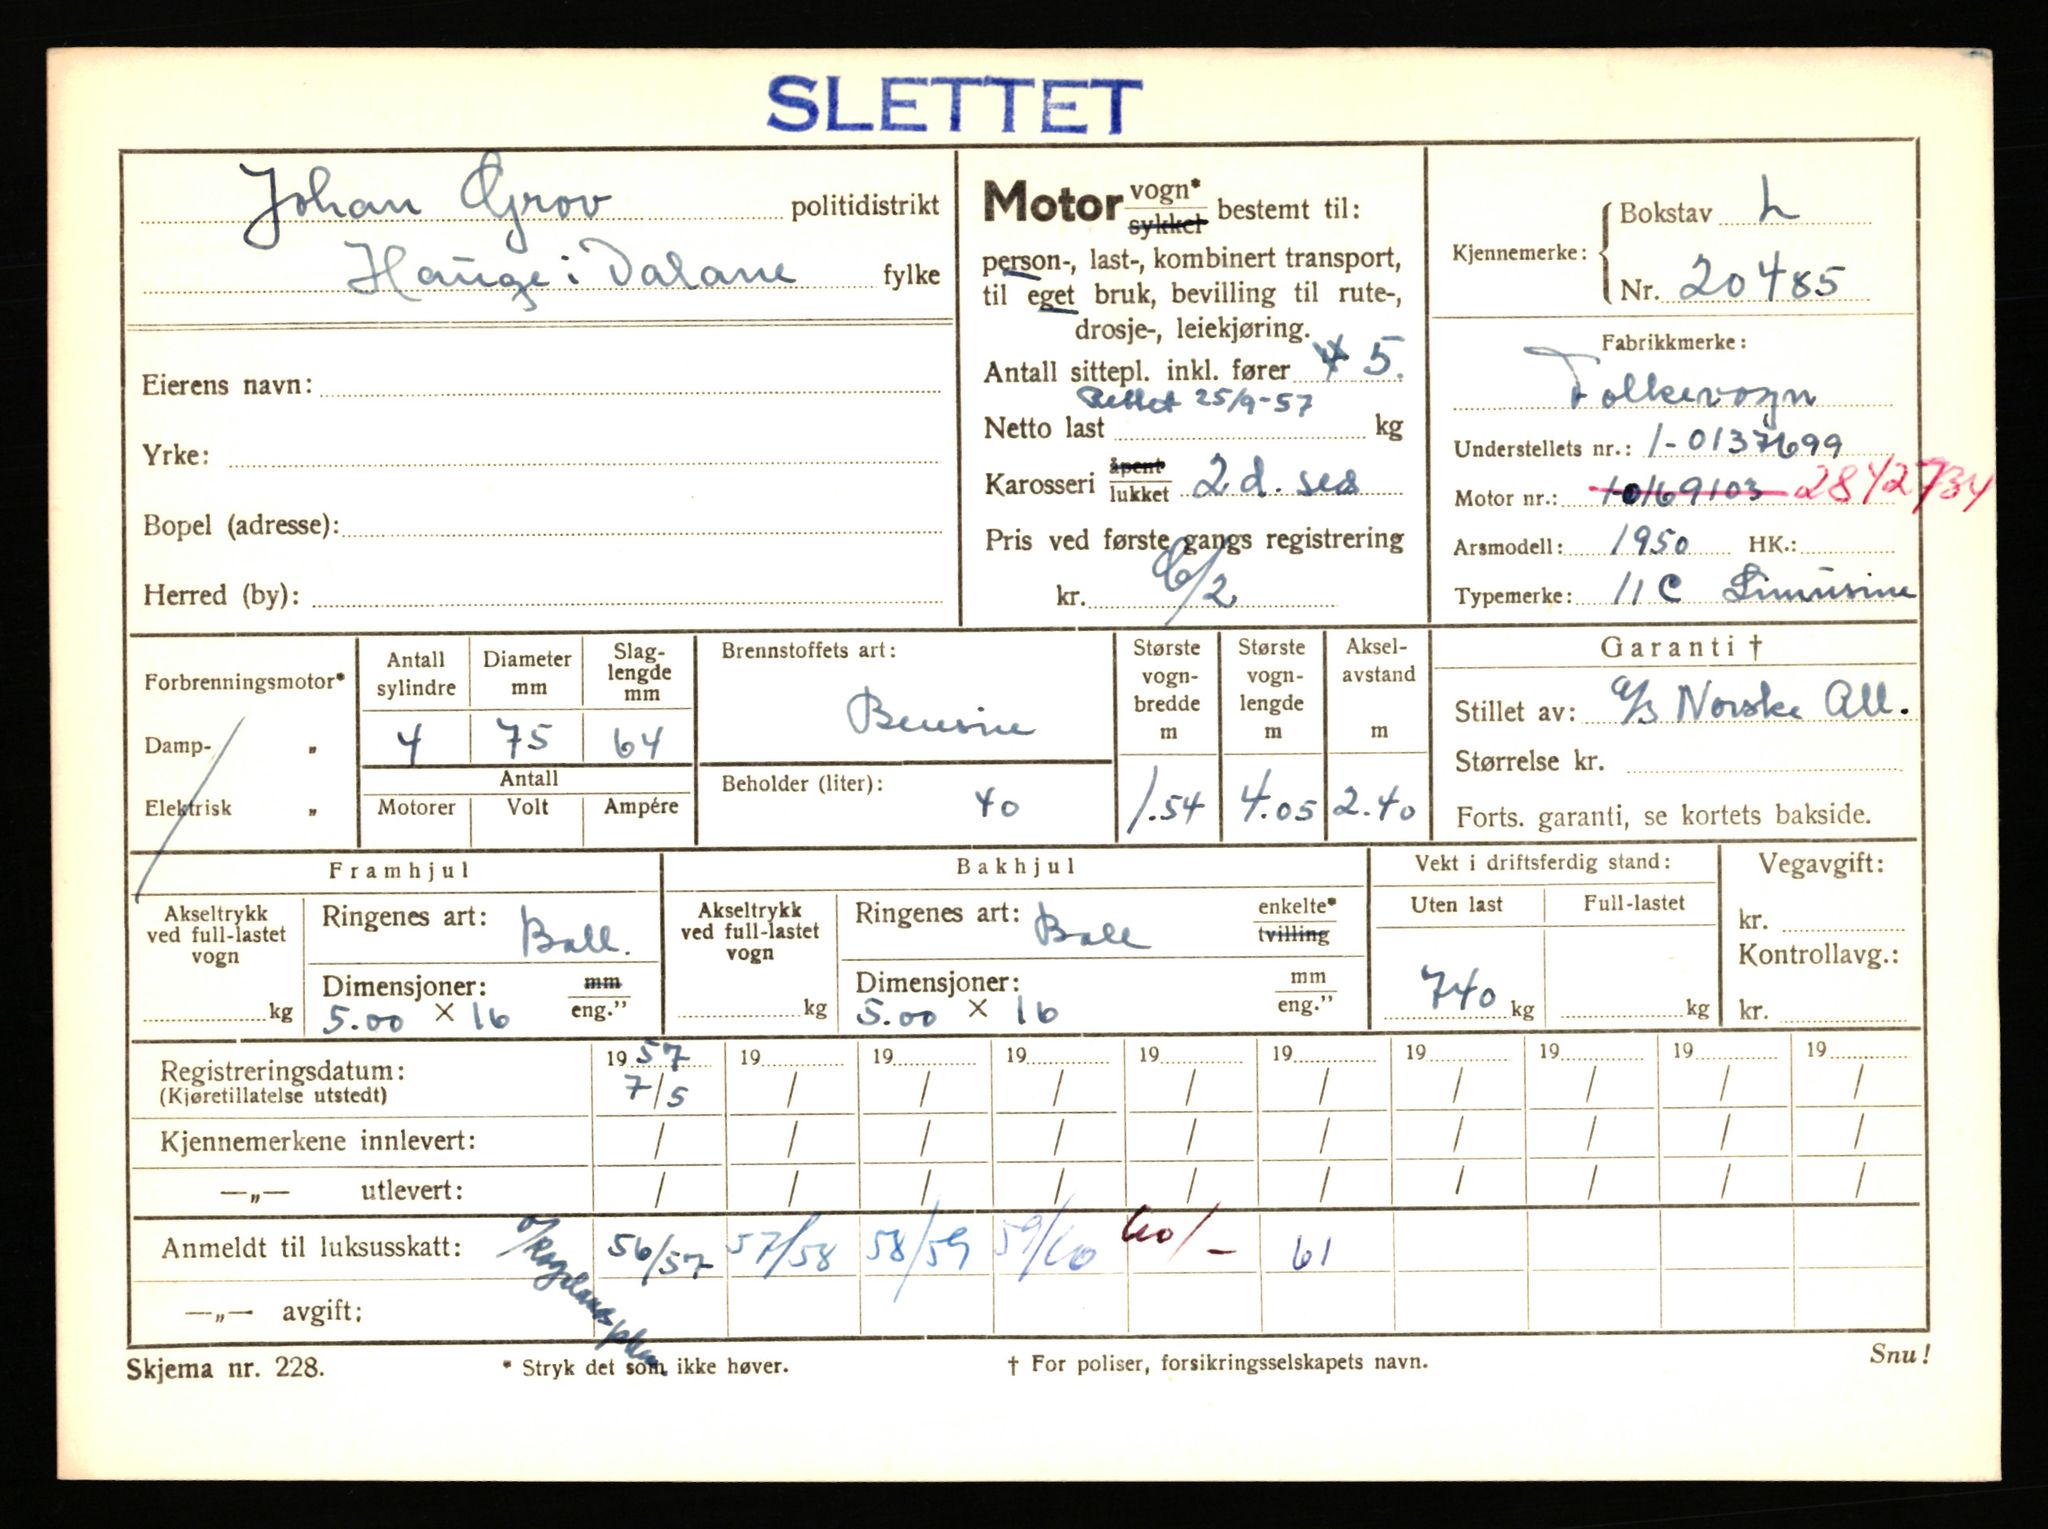 SLETTET
Johan Grov politidistrikt
Hauge i Dalane fylke
Eierens navn:
Yrke:
Bopel (adresse):
Herred (by):
Motor vogn* sykkel bestemt til:
person-, last-, kombinert transport,
til eget bruk, bevilling til rute-,
drosje-, leiekjøring.
Antall sittepl. inkl. fører 4 5.
Rettet 25/9-57
Netto last kg
Karosseri åpent lukket 2 d. sed
Pris ved første gangs registrering
kr.
Kjennemerke: Bokstav L
Nr. 20485
Fabrikkmerke:
Folkevogn
Understellets nr.: 1-0137699
Motor nr.: 1-0169103 2842734
Arsmodell: 1950 HK.:
Typemerke: 11 C Limusine
Forbrenningsmotor*
Damp- „
Elektrisk „
Antall sylindre 4
Diameter mm 75
Slag-
lengde
mm
64
Antall
Motorer Volt Ampére
Brennstoffets art:
Bensin
Beholder (liter):
40
Største
vogn-
bredde
m
1.54
Største
vogn-
lengde
m
4.05
Aksel-
avstand
m
2.40
Garanti †
Stillet av: a/s Norske All.
Størrelse kr.
Forts. garanti, se kortets bakside.
Framhjul
Akseltrykk
ved full-lastet
vogn
kg
Ringenes art: Ball.
Dimensjoner: mm
5.00 × 16 eng.”
Bakhjul
Akseltrykk
ved full-lastet
vogn
kg
Ringenes art: Ball enkelte* tvilling
Dimensjoner: mm
5.00 × 16 eng.”
Vekt i driftsferdig stand:
Uten last Full-lastet
740 kg kg
Vegavgift:
kr.
Kontrollavg.:
kr.
Registreringsdatum: 19 57 19 19 19 19 19 19 19 19 19
(Kjøretillatelse utstedt) 7/5 / / / / / / / / /
Kjennemerkene innlevert: / / / / / / / / / /
—„— utlevert: / / / / / / / / / /
Anmeldt til luksusskatt: 56/57 57/58 58/59 59/60 60/- 61
—„— avgift:
Skjema nr. 228.
* Stryk det som ikke høver.
† For poliser, forsikringsselskapets navn.
Snu!